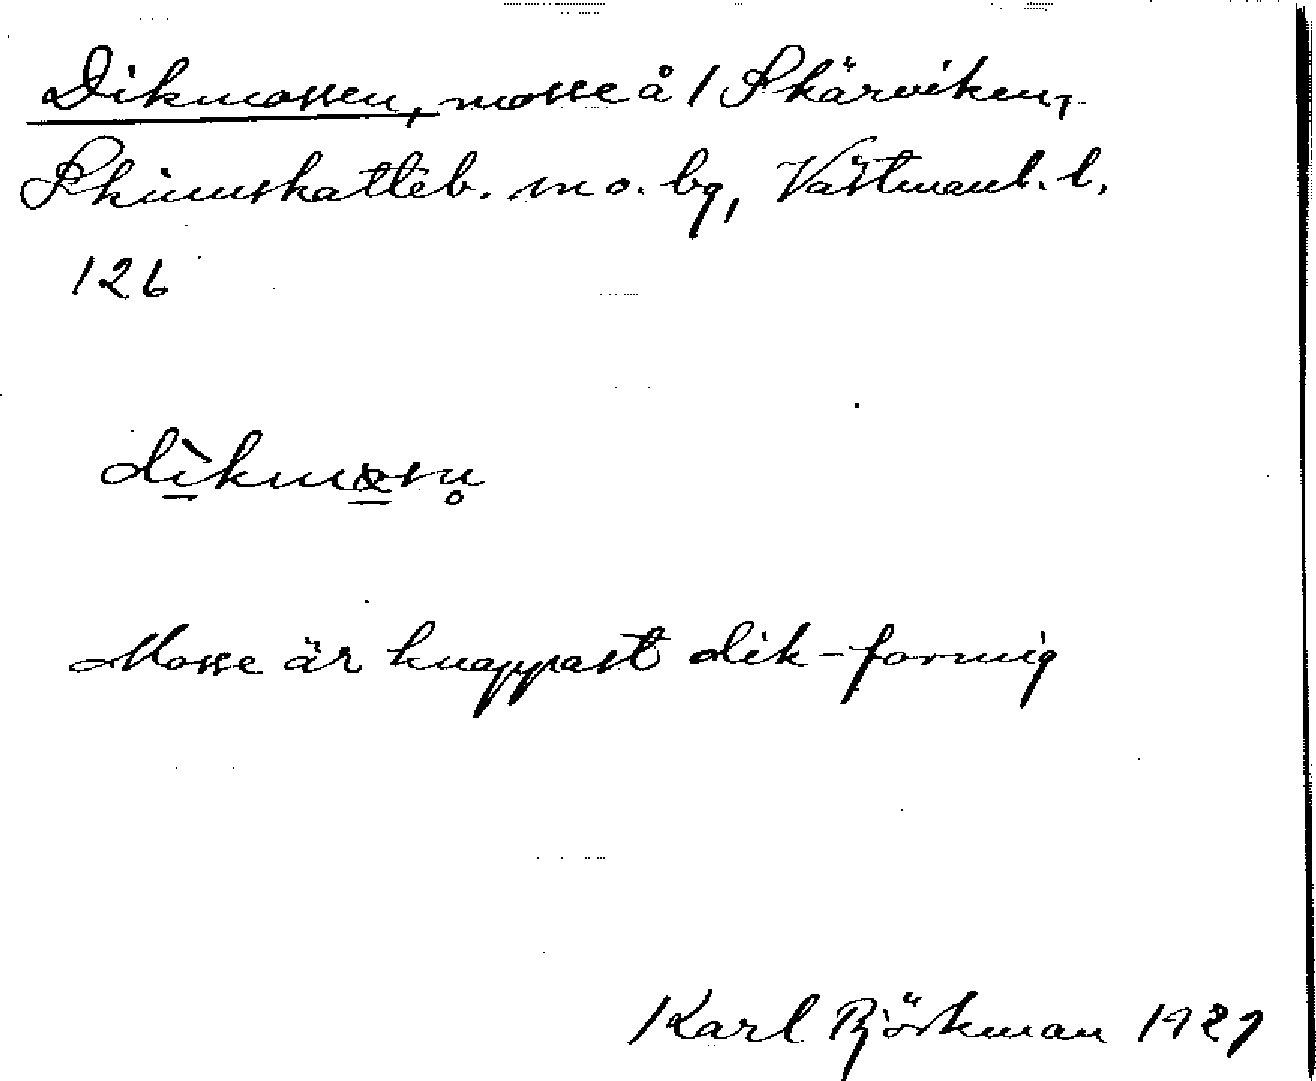 Dikmossen, mosse å 1 Skärviken,
Skinnskatteb. sn o. bg, Västmanl. l.
126
dìkmosn̥
Mosse är knappast dik-formig
Karl Björkman 1927